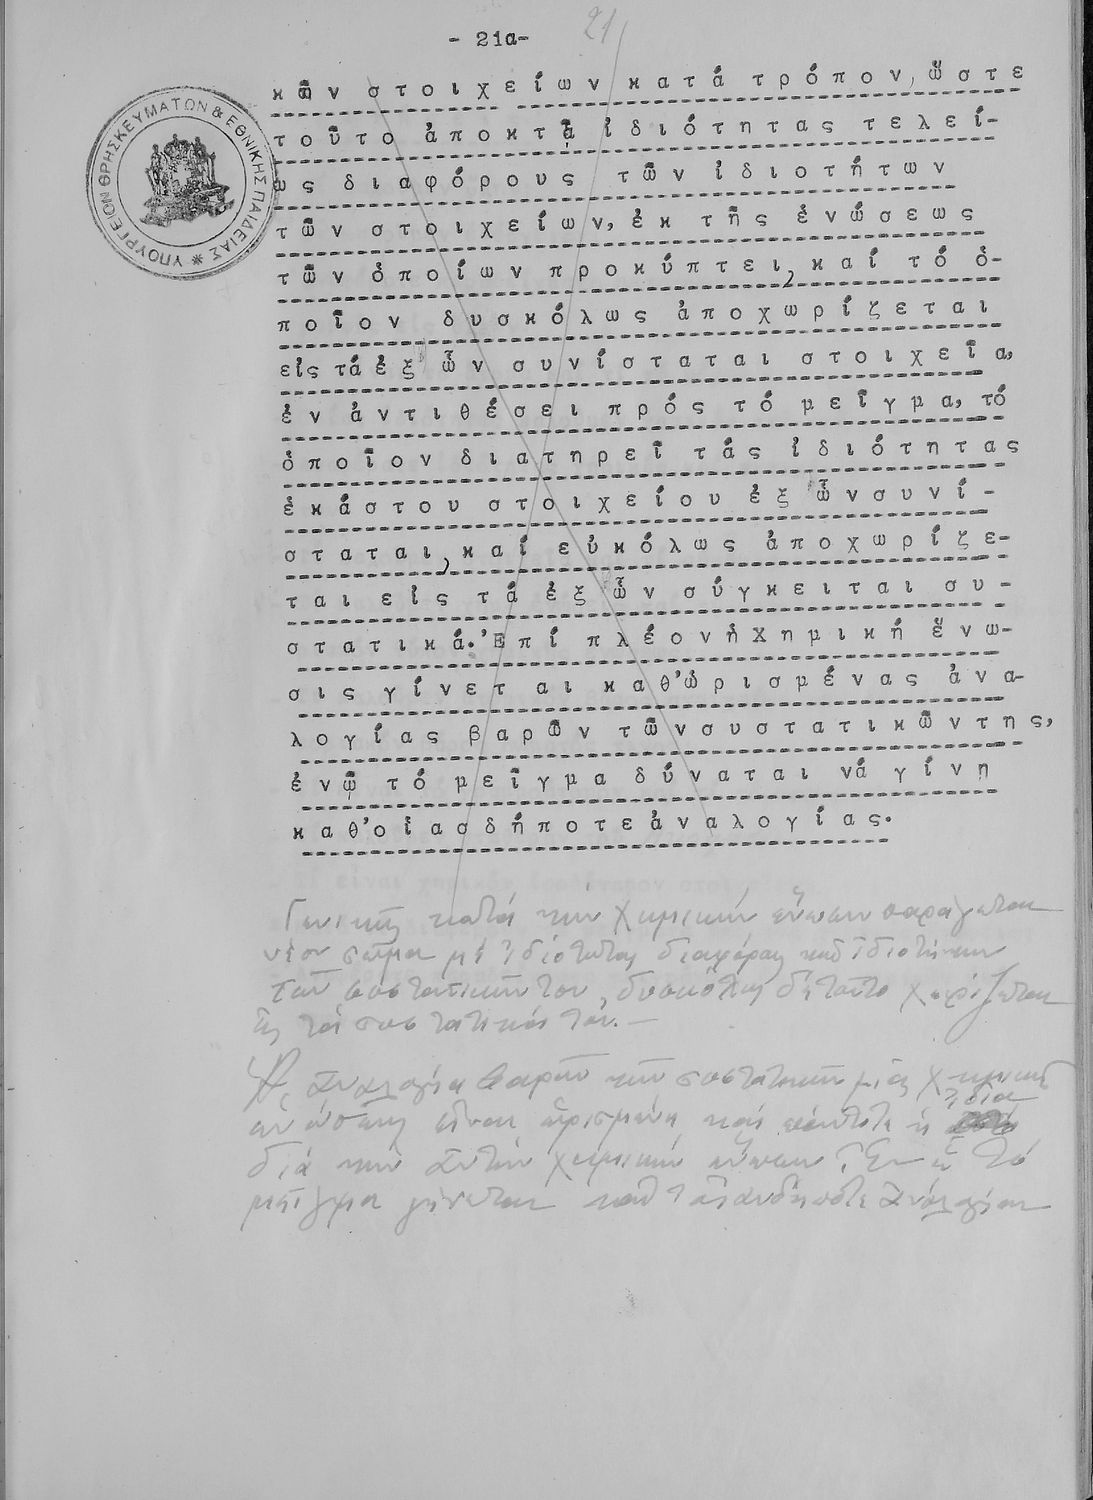 - 21α-
21
κῶν στοιχείων κατά τρόπον, ὥστε
τοῦτο ἀποκτᾷ ἰδιότητας τελεί-
ως διαφόρους τῶν ἰδιοτήτων
τῶν στοιχείων, ἐκ τῆς ἑνώσεως
τῶν ὁποίων προκύπτει, καί τό ὁ-
ποῖον δυσκόλως ἀποχωρίζεται
εἰς τά ἐξ ὧν συνίσταται στοιχεῖα,
ἐν ἀντιθέσει πρός τό μεῖγμα, τό
ὁποῖον διατηρεῖ τάς ἰδιότητας
ἑκάστου στοιχείου ἐξ ὧν συνί-
σταται, καί εὐκόλως ἀποχωρίζε-
ται εἰς τά ἐξ ὧν σύγκειται συ-
στατικά. Ἐπί πλέον ἡ Χημική ἕνω-
σις γίνεται καθ' ὡρισμένας ἀνα-
λογίας βαρῶν τῶν συστατικῶν της,
ἐνῷ τό μεῖγμα δύναται νά γίνῃ
καθ' οἱασδήποτε ἀναλογίας.
Γενικῶς κατά τήν χημικήν ἕνωσιν παράγεται
νέον σῶμα μέ ἰδιότητας διαφόρους
τῶν συστατικῶν του, δυσκόλως δέ τοῦτο χωρίζεται
εἰς τά συστατικά του. —
Ἡ ἀναλογία βαρῶν τῶν συστατικῶν μιᾶς χημικῆς
ἑνώσεως εἶναι ὡρισμένη καί πάντοτε ἡ ἴδια
διά τήν αὐτήν χημικήν ἕνωσιν. Ἐνῷ τό
μεῖγμα γίνεται καθ' οἱανδήποτε ἀναλογίαν
ΥΠΟΥΡΓΕΙΟΝ ΘΡΗΣΚΕΥΜΑΤΩΝ & ΕΘΝΙΚΗΣ ΠΑΙΔΕΙΑΣ *